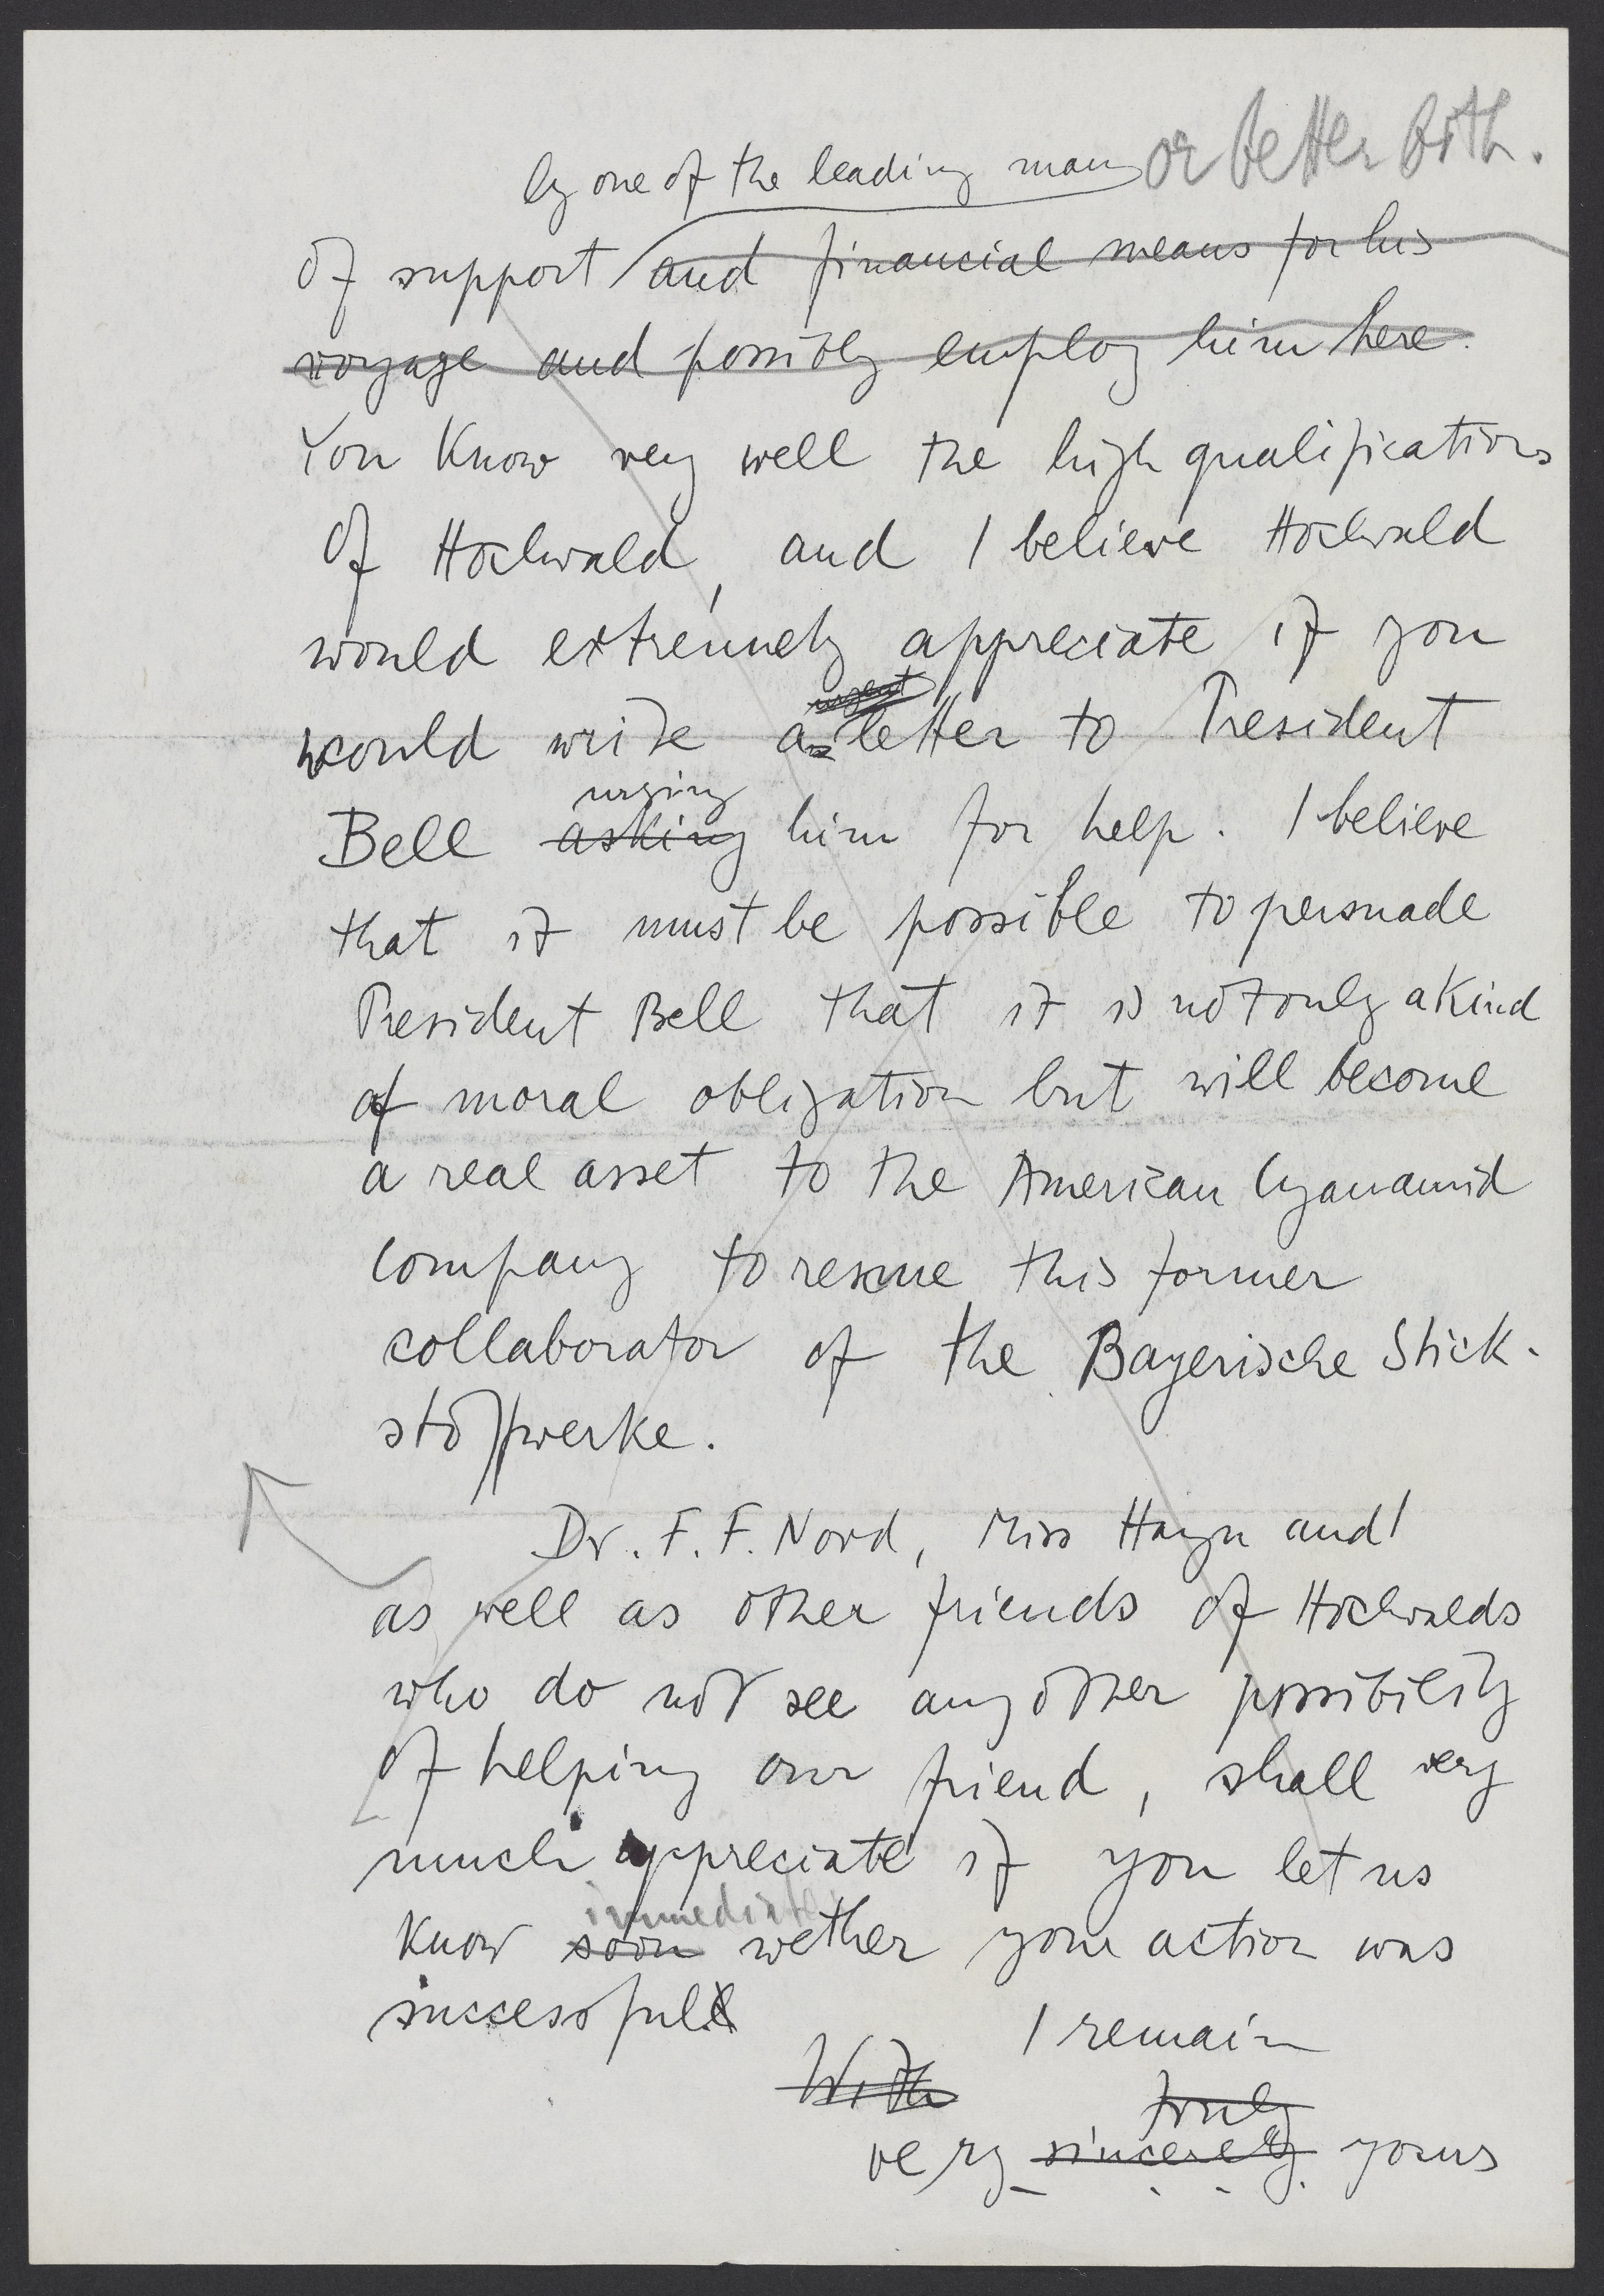 by one of the leading man or better both.
of support and financial means for his
voyage and possibly employ him here.
You know very well the high qualifications
of Hochwald, and I believe Hochwald
would extremely appreciate if you
would write a urgent letter to President
urging
Bell asking him for help. I believe
that it must be possible to persuade
President Bell that it is not only a kind
of moral obligation but will become
a real asset to the American Cyanamid
Company to rescue this former
collaborator of the Bayerische Stick-
stoffwerke.
Dr. F. F. Nord, Miss Hayn and I
as well as other friends of Hochwalds
who do not see any other possibility
of helping our friend, shall very
much appreciate if you let us
immediately
know soon wether your action was
successful
I remain
With
truly
very sincerely yours